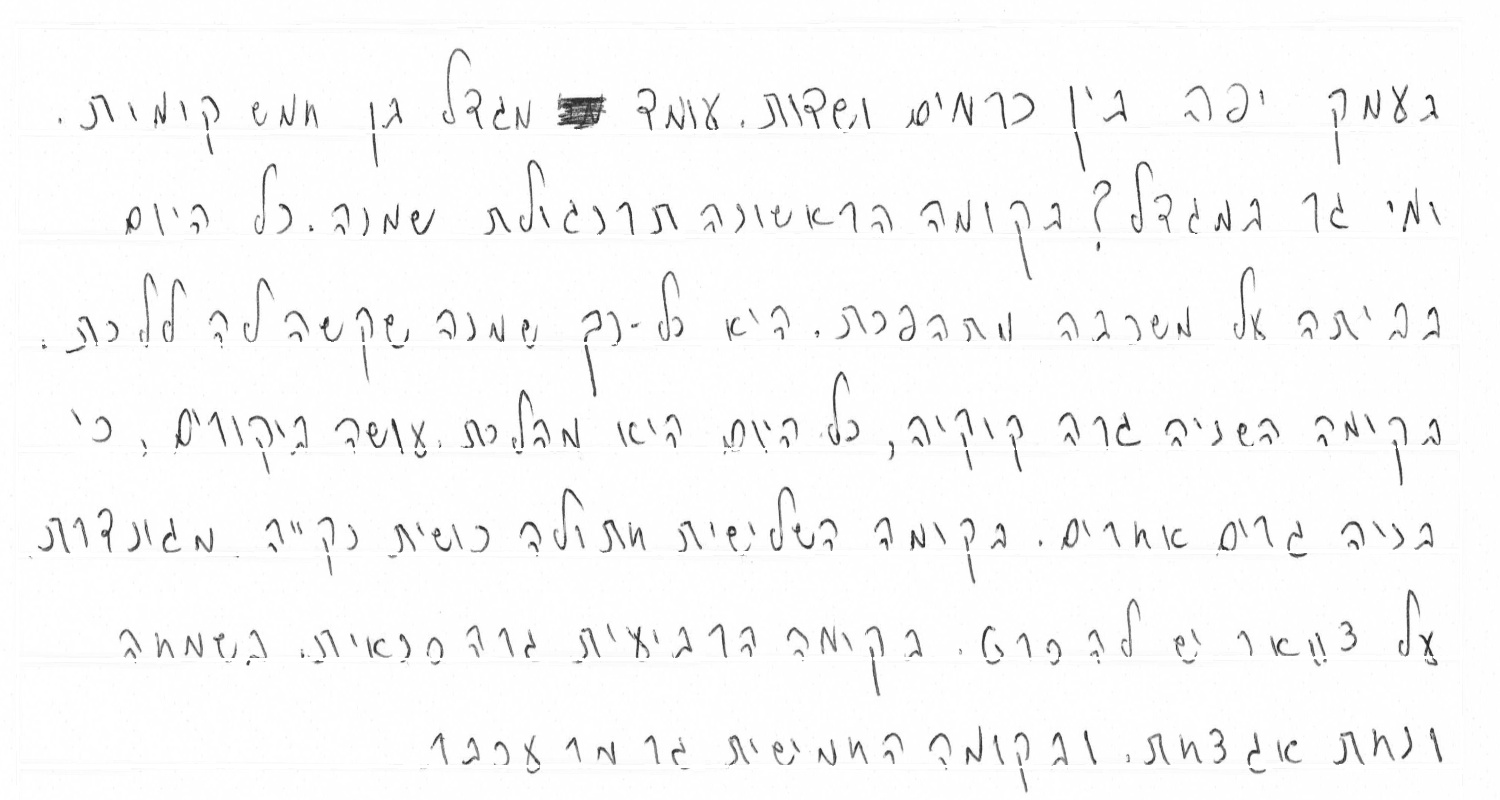 בעמק יפה בין כרמים ושדות. עומד מגדל בן חמש קומות.
ומי גר במגדל? בקומה הראשונה תרנגולת שמנה. כל היום
בביתה על משכבה מתהפכת. היא כל-כך שמנה שקשה לה ללכת.
בקומה השניה גרה קוקיה, כל היום היא מהלכת. עושה ביקורים, כי
בניה גרים אחרים. בקומה השלישית חתולה כושית נקייה מגונדרת
על צוואר יש לה סרט. בקומה הרביעית גרה סנאית. בשמחה
ונחת אגצחת. ובקומה החמישית גר מר עכבר